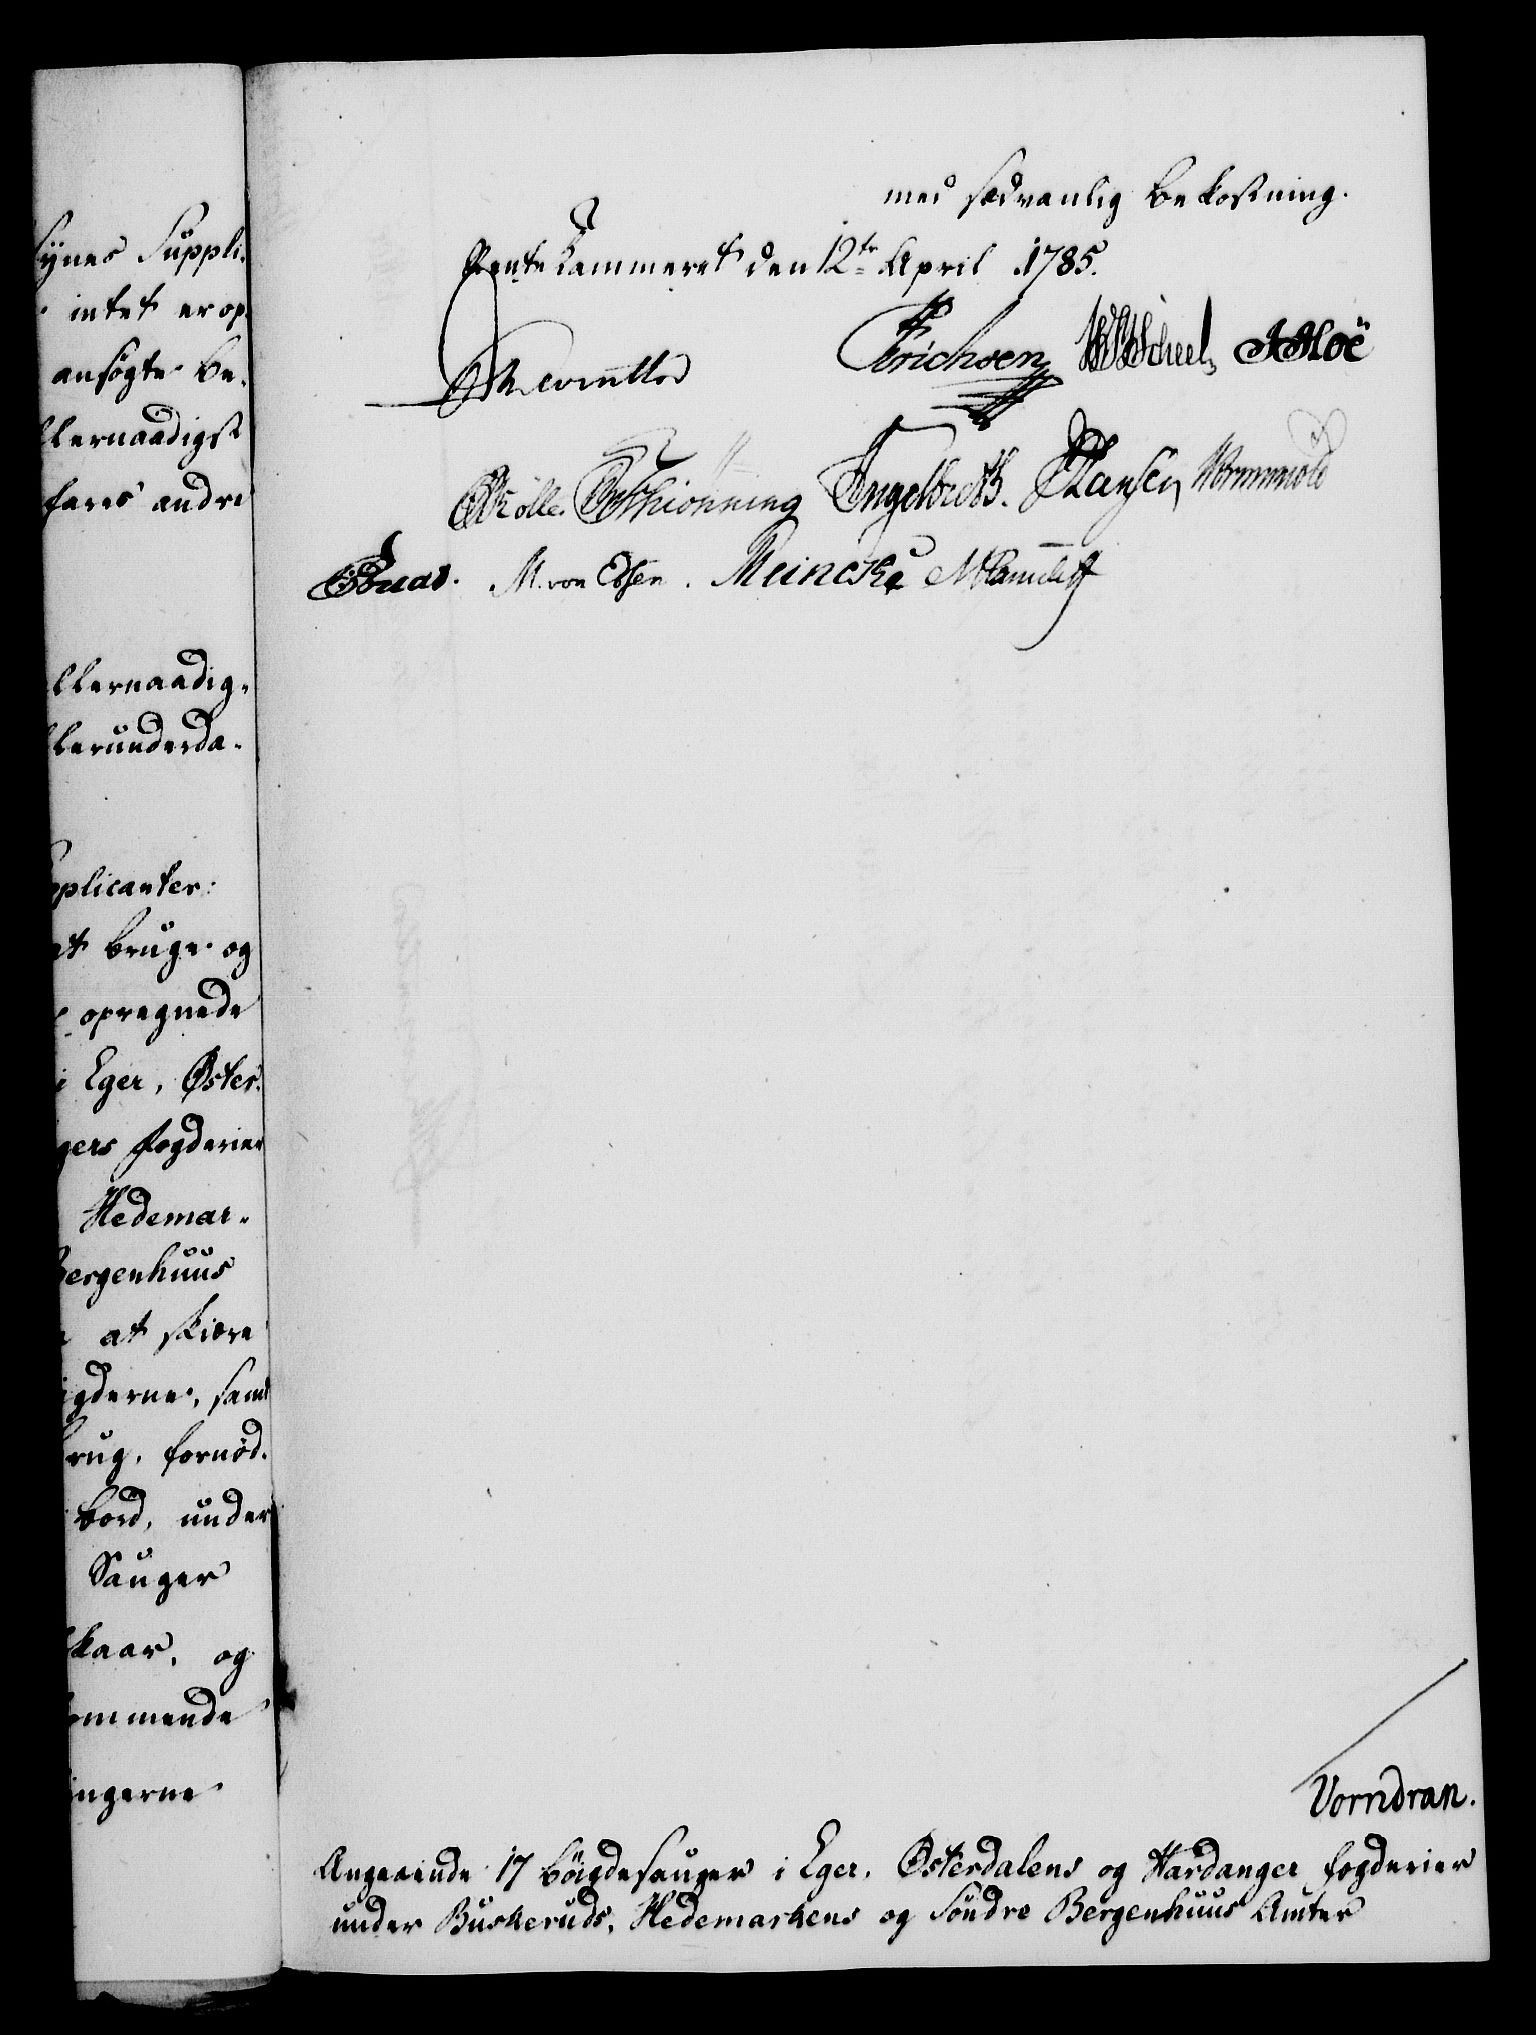 synes Suppli-
intet er op-
ansøgte be-
llernaadigst
fares andre
llernaadig-
llerunderda-
pplicanter:
at bruge og
opregnede
i Eger, Øster-
gers fogderier
Hedemar-
Bergenhuus
at skiære
igderne, samt
rug, fornød-
bord, under
Sauger
lkaar, og
ommende
ingerne
med sædvanlig bekostning.
Rentekammeret den 12te April 1785.
Erichsen WScheel
Schiønning Engelbreth. Hansen Wormwold
M. von Essen. Meincke
Vorndran.
Angaaende 17 bøigdesauger i Eger, Østerdalens og Hardanger fogderier
under Buskeruds, Hedemarkens og Søndre Bergenhuus Amter